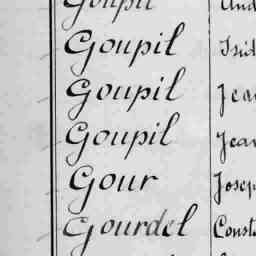 Goupil
Goupil Isid
Goupil Jea
Goupil Jean
Gour Josep
Gourdel Consta